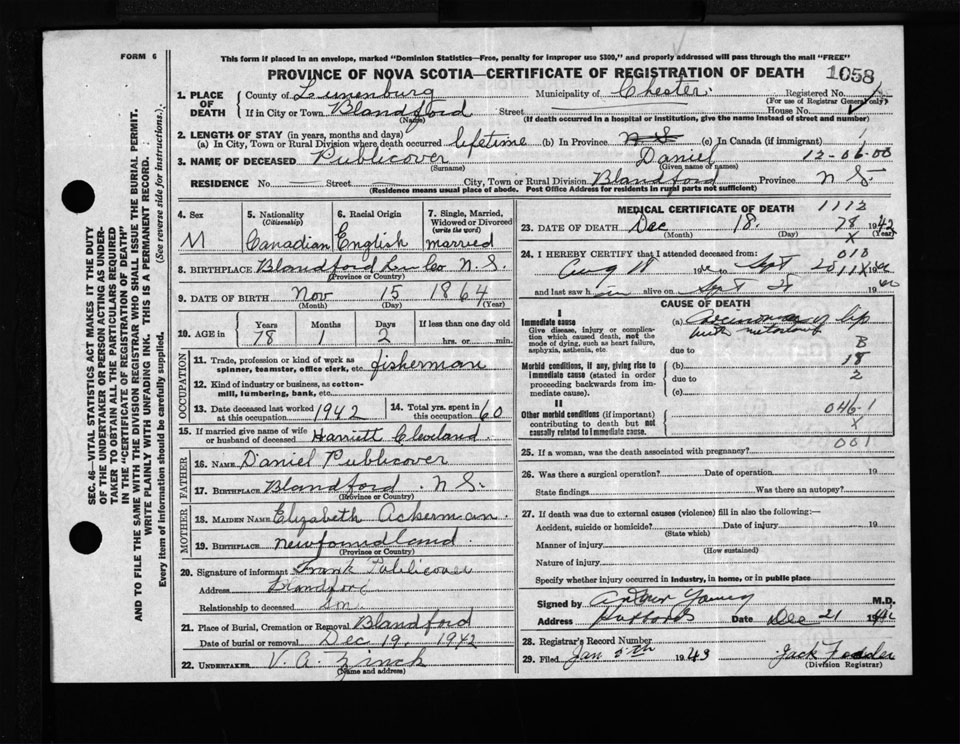 FORM 6
This form if placed in an envelope, marked "Dominion Statistics—Free, penalty for improper use $300," and properly addressed will pass through the mail "FREE"
PROVINCE OF NOVA SCOTIA—CERTIFICATE OF REGISTRATION OF DEATH
1058
1. PLACE OF DEATH
County of Lunenburg Municipality of Chester. Registered No.
(For use of Registrar General only)
If in City or Town Blandford Street House No.
(Name) (If death occurred in a hospital or institution, give the name instead of street and number)
2. LENGTH OF STAY (in years, months and days)
(a) In City, Town or Rural Division where death occurred lifetime (b) In Province N S (c) In Canada (if immigrant)
3. NAME OF DECEASED Publicover Daniel 12-06-00
(Surname) (Given name or names)
RESIDENCE No. Street City, Town or Rural Division Blandford Province N S.
(Residence means usual place of abode. Post Office Address for residents in rural parts not sufficient)
4. Sex
M
5. Nationality
(Citizenship)
Canadian
6. Racial Origin
English
7. Single, Married, Widowed or Divorced
(write the word)
married
8. BIRTHPLACE Blandford Lun Co N. S.
(Province or Country)
9. DATE OF BIRTH Nov 15 1864
(Month) (Day) (Year)
10. AGE in
Years Months Days If less than one day old
78 1 2 hrs. or min.
OCCUPATION
11. Trade, profession or kind of work as spinner, teamster, office clerk, etc. fisherman
12. Kind of industry or business, as cotton-mill, lumbering, bank, etc.
13. Date deceased last worked at this occupation 1942
14. Total yrs. spent in this occupation 60
15. If married give name of wife or husband of deceased Harriett Cleveland.
FATHER
16. NAME Daniel Publicover
17. BIRTHPLACE Blandford. N S.
(Province or Country)
MOTHER
18. MAIDEN NAME Elizabeth Ackerman.
19. BIRTHPLACE Newfoundland.
(Province or Country)
20. Signature of informant Frank Publicover
Address Blandford
Relationship to deceased Son.
21. Place of Burial, Cremation or Removal Blandford
Date of burial or removal Dec 19, 1942
22. UNDERTAKER V. A. Zinck
(Name and address)
MEDICAL CERTIFICATE OF DEATH 1113
23. DATE OF DEATH Dec 18. 78 1942
(Month) (Day) (Year)
X
24. I HEREBY CERTIFY that I attended deceased from: 010
Aug 18 19 to Sept 20 19
and last saw h alive on Sept 19
CAUSE OF DEATH
I
Immediate cause
Give disease, injury or complication which caused death, not the mode of dying, such as heart failure, asphyxia, asthenia, etc.
(a) lip
with
B
due to
18
Morbid conditions, if any, giving rise to immediate cause (stated in order proceeding backwards from immediate cause).
(b)
due to 2
(c)
II
Other morbid conditions (if important) contributing to death but not causally related to immediate cause.
046-1
X
001
25. If a woman, was the death associated with pregnancy?
26. Was there a surgical operation? Date of operation. 19
State findings Was there an autopsy?
27. If death was due to external causes (violence) fill in also the following:—
Accident, suicide or homicide? Date of injury 19
(State which)
Manner of injury
(How sustained)
Nature of injury
Specify whether injury occurred in industry, in home, or in public place
Signed by Arthur Young M.D.
Address Date Dec 21 19
28. Registrar's Record Number
29. Filed Jan 5th 1943 Jack
(Division Registrar)
SEC. 46—VITAL STATISTICS ACT MAKES IT THE DUTY
OF THE UNDERTAKER OR PERSON ACTING AS UNDER-
TAKER TO OBTAIN ALL THE PARTICULARS REQUIRED
IN THE "CERTIFICATE OF REGISTRATION OF DEATH"
AND TO FILE THE SAME WITH THE DIVISION REGISTRAR WHO SHALL ISSUE THE BURIAL PERMIT.
WRITE PLAINLY WITH UNFADING INK. THIS IS A PERMANENT RECORD.
Every item of information should be carefully supplied. (See reverse side for instructions.)